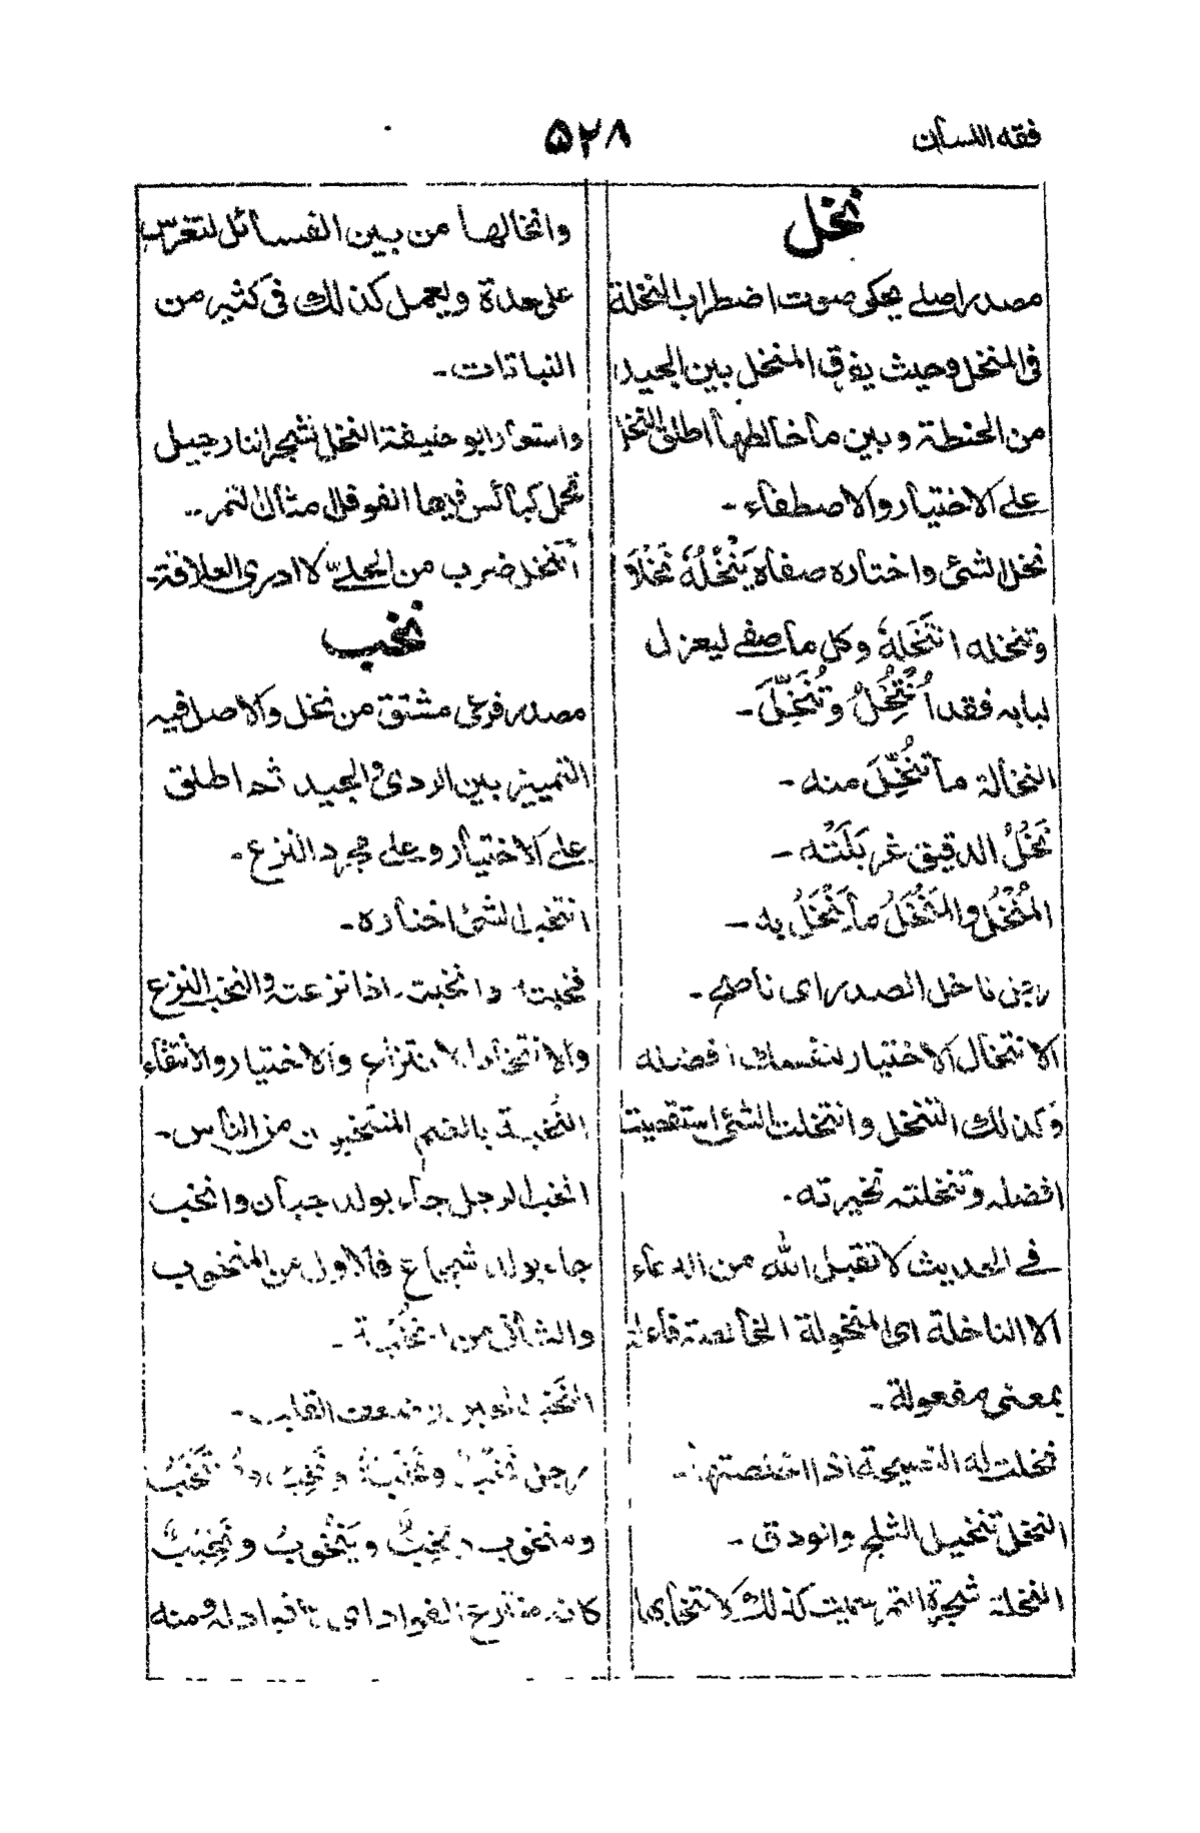 فقه اللسان
۵۲۸
نخل
مصدر اصلي يحكى صوت اضطراب النخلة
فى المنخل وحيث يفرق المنخل بين الجيد
من الحنطة وبين ما خالطها اطلق النخل
على الاختيار والاصطفاء -
نخل الشئ واختاره صفاه يَنْخُلُهٗ نَخْلاً
وتنخله انتَخَلهٗ وكل ما صفى ليعزل
لبابه فقد اُنْتُخِلُ وتُنُخِّلَ -
النخالة ما تُنُخِّلَ منه -
نَخْلُ الدقيق غربَلَتُه -
المُنْخُلُ والمُنْخَلُ ما يَنْخَلُ به -
ناخل الصدر اى ناصح -
الانتخال الاختيار لنفسك افضله
وكذلك التنخل وانتخلت الشئ استقصيت
افضله وتنخلته تخيرته -
في الحديث لا تقبل الله من الدعاء
الا الناخلة اى المنخولة الخالصة فاعلة
بمعنى مفعولة -
نخلت له النصيحة اذا اخلصتها -
النخل تنخيل الثلج والودق -
النخلة شجرة التمر سميت كذلك لانتخابها
وانخالها من بين الفسائل لتغرس
على حدة ويعمل كذلك فى كثير من
النباتات -
واستعار ابو حنيفة النخل لشجر النارجيل
تحمل كبائس فيها الفوفل مثال التمر --
أَلنخل ضرب من الحلىّ لا ادرى العلاقة -
نخب
مصدر فرعى مشتق من نخل والاصل فيه
التمييز بين الردى والجيد ثم اطلق
على الاختيار وعلى مجرد النزع -
انتخب الشئ اختاره -
نخبته وانخبته اذا نزعته والنخب النزع
والانتخاب الانتزاع والاختيار والانتقاء
النُّخبة بالضم المنتخبون من الناس -
انخب الرجل جاء بولد جبان وانخب
جاء بولد شجاع فالاول من المنخوب
والثانى من النُخُبة -
النَّخب الجبن وضعف القلب -
رجل نَخْبٌ ونَخْبَةٌ ونَخِبٌ ومُنْتَخَبٌ
ومنخوب ونِخِبٌّ ويَنْخُوبُ ونَخِيْبٌ
كانه منتزع الفواد اى لا فواد له ومنه